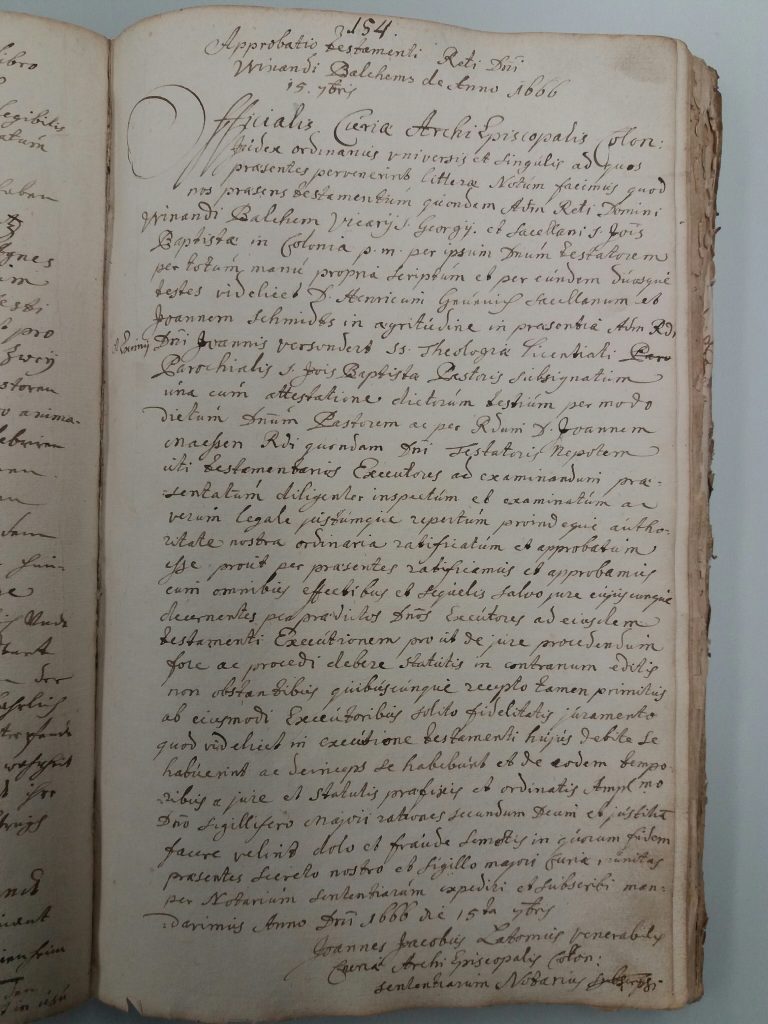 154.
Approbatio testamenti Rdi Dni
Winandi Balchems de Anno 1666
15. 7bris
Officialis Curiæ ArchiEpiscopalis Colon:
Judex ordinarius universis et singulis ad quos
præsentes pervenerint litteræ Notum facimus quod
nos præsens testamentum quondam Adm Rdi Domini
Winandi Balchem Vicarij S. Georgij et sacellani S. Jois
Baptistæ in Colonia p. m. per ipsum Dnum testatorem
per totum manu propria scriptum et per eundem duosque
testes videlicet D. Henricum sacellanum et
Joannem Schmidts in ægritudine in præsentia Adm Rdi
Dni Joannis SS. Theologiæ Licentiati Paro
Parochialis S. Jois Baptistæ Pastoris subsignatum
una cum attestatione dictorum testium per modo
dictum Dnum Pastorem ac per Rdum D. Joannem
Maessen Rdi quondam Dni Testatoris Nepotem
uti testamentarios Executores ad examinandum præ-
sentatum diligenter inspectum et examinatum ac
verum legale justumque repertum proindeque autho-
ritate nostra ordinaria ratificatum et approbatum
esse prout per præsentes ratificamus et approbamus
cum omnibus effectibus et sequelis salvo jure cujuscunque
decernentes per prædictos Dnos Executores ad ejusdem
testamenti Executionem pro ut de jure procedendum
fore ac procedi debere statutis in contrarium editis
non obstantibus quibuscunque recepto tamen primitus
ab eiusmodi Executoribus solito fidelitatis juramento
quod videlicet in executione testamenti hujus debite se
habuerint ac deinceps se habebunt et de eodem tempo-
ribus a jure et statutis præfixis et ordinatis Amplmo
Dno Sigillifero Majori rationes secundum Deum et justitiam
facere velint dolo et fraude semotis in quorum fidem
præsentes secreto nostro et sigillo majori Curiæ munitas
per Notarium sententiarum expediri et subscribi man-
darimus Anno Dni 1666 die 15ta 7bris
Joannes Jacobus Latomus venerabilis
Curiæ ArchiEpiscopalis Colon:
sententiarum Notarius subscripsi